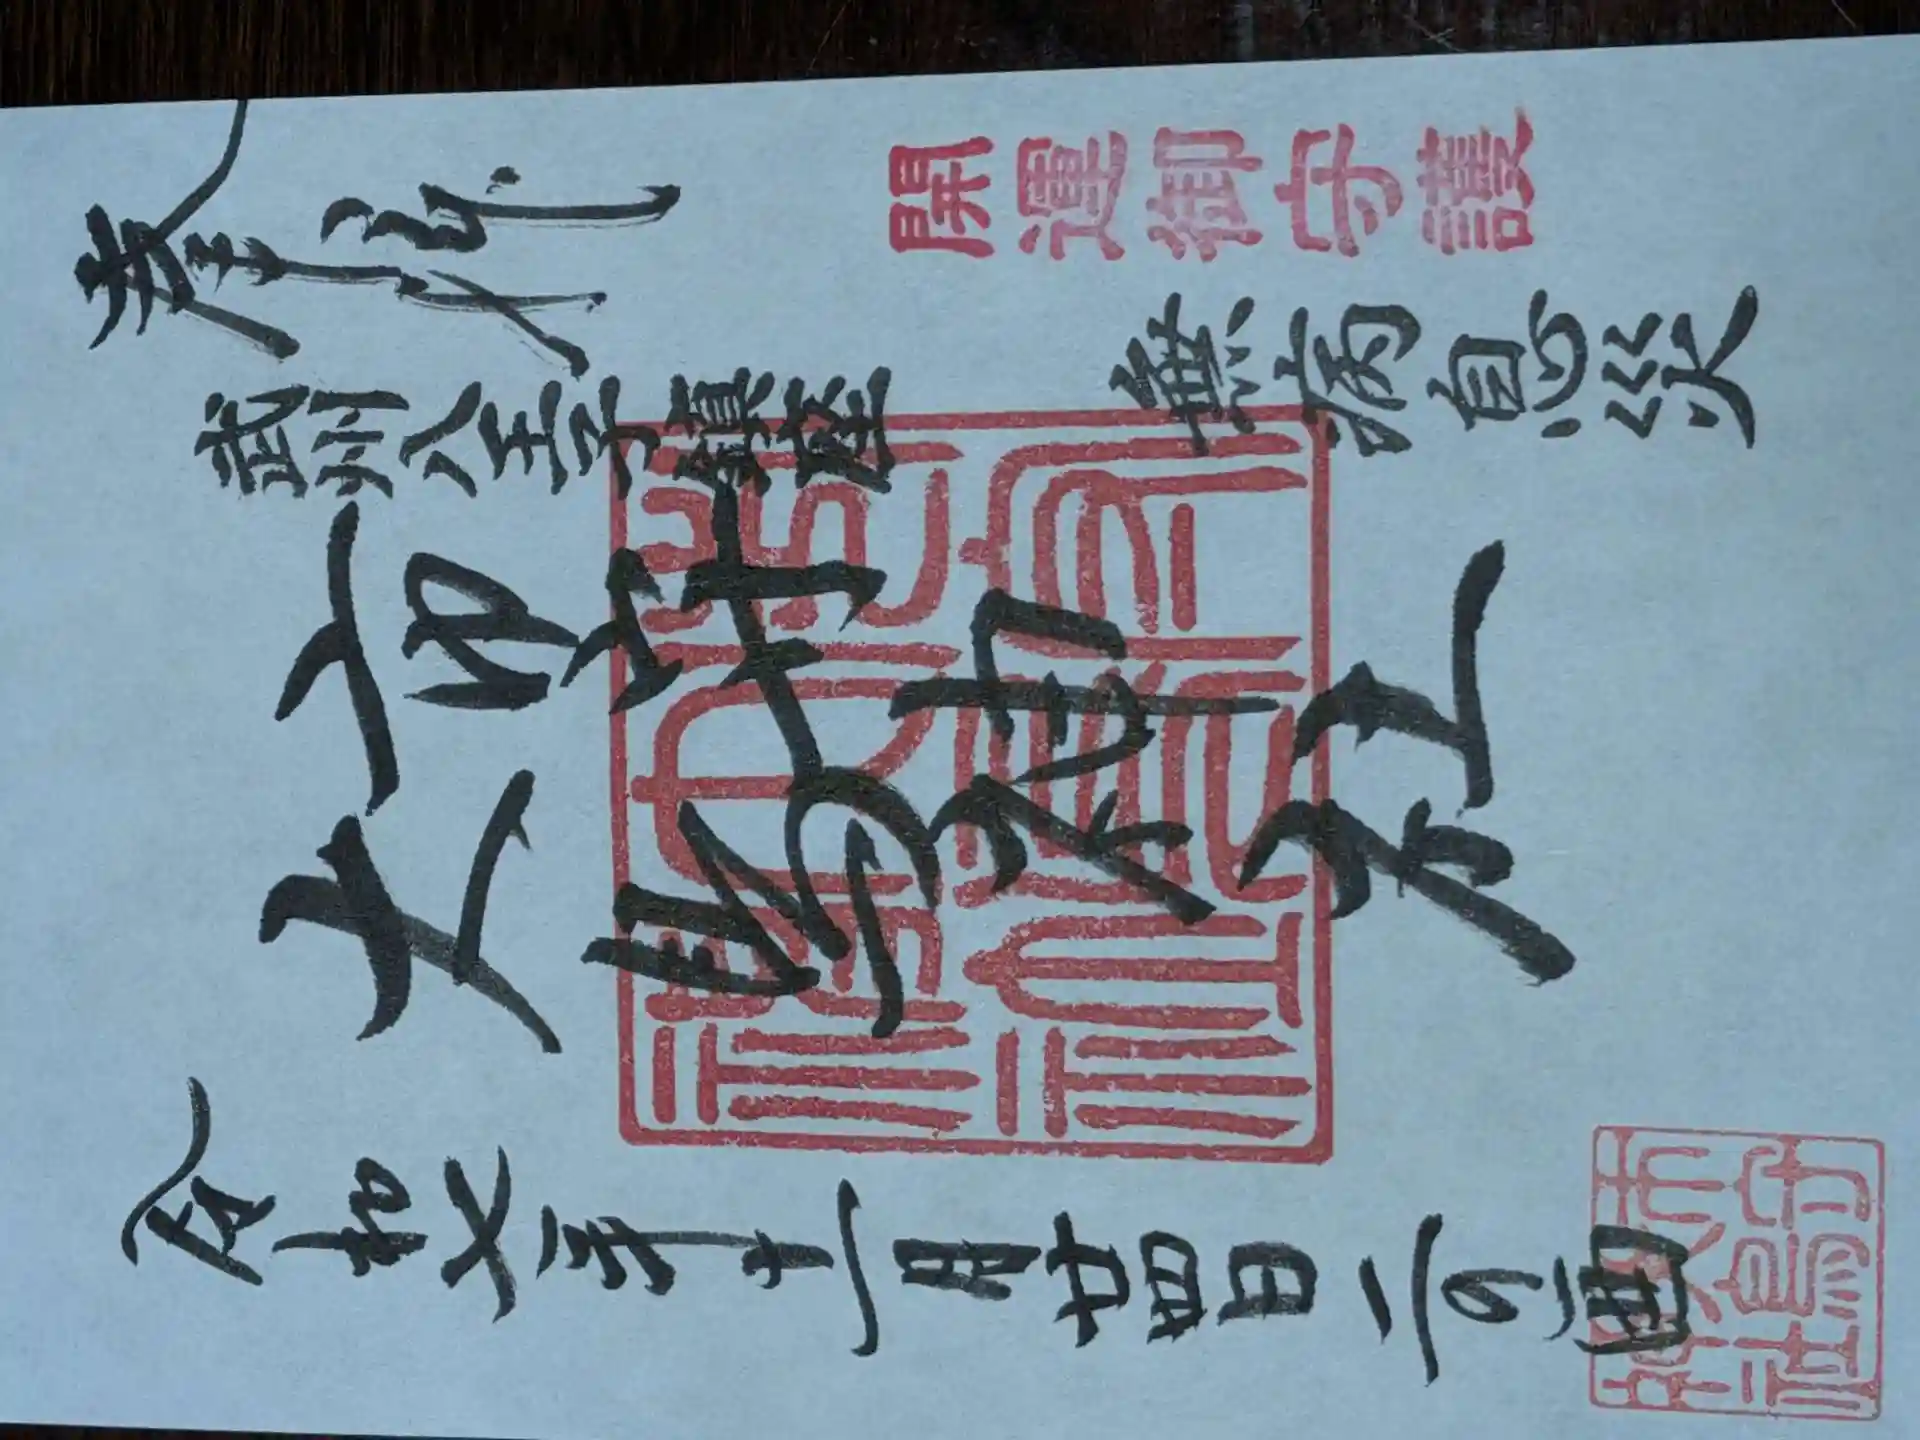 開運御守護
奉拝
武州八王子鎮座
無病息災
市守
大鳥
神社
令和七年十一月廿四日二の酉